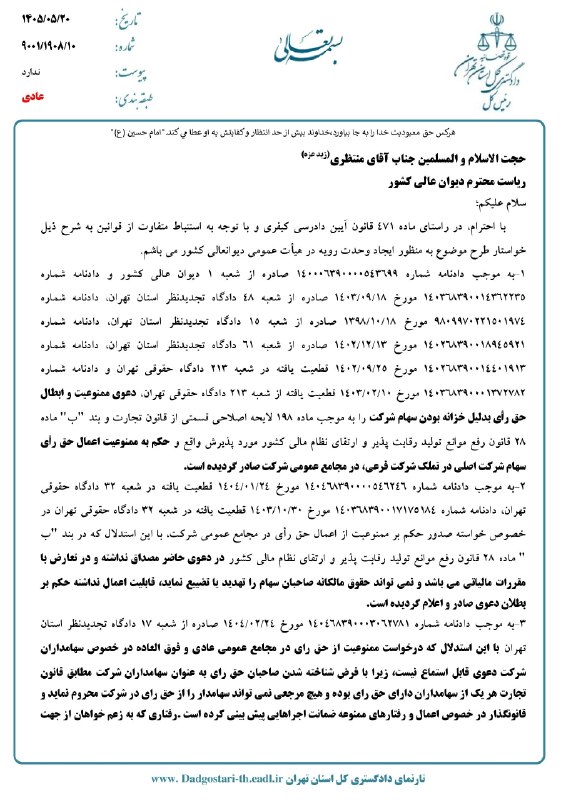 بسمه تعالی
دادگستری کل استان تهران
رئیس کل
تاریخ: ۱۴۰۵/۰۵/۲۰
شماره: ۹۰۰۱/۱۹۰۸/۱۰
پیوست: ندارد
طبقه بندی: عادی
هرکس حق معبودیت خدا را به جا بیاورد،خداوند بیش از حد انتظار و کفایتش به او عطا می کند."امام حسین (ع)"
حجت الاسلام و المسلمین جناب آقای منتظری(زید عزه)
ریاست محترم دیوان عالی کشور
سلام علیکم؛
با احترام، در راستای ماده ۴۷۱ قانون آیین دادرسی کیفری و با توجه به استنباط متفاوت از قوانین به شرح ذیل
خواستار طرح موضوع به منظور ایجاد وحدت رویه در هیأت عمومی دیوانعالی کشور می باشم.
۱-به موجب دادنامه شماره ۱۴۰۰۰۶۳۹۰۰۰۰۵۴۳۶۹۹ صادره از شعبه ۱ دیوان عالی کشور و دادنامه شماره
۱۴۰۳۶۸۳۹۰۰۰۱۴۳۶۲۲۳۵ مورخ ۱۴۰۳/۰۹/۱۸ صادره از شعبه ۴۸ دادگاه تجدیدنظر استان تهران، دادنامه شماره
۹۸۰۹۹۷۰۲۲۱۵۰۱۹۷۴ مورخ ۱۳۹۸/۱۰/۱۸ صادره از شعبه ۱۵ دادگاه تجدیدنظر استان تهران، دادنامه شماره
۱۴۰۲۶۸۳۹۰۰۰۱۸۹۴۵۹۲۱ مورخ ۱۴۰۲/۱۲/۱۳ صادره از شعبه ۶۱ دادگاه تجدیدنظر استان تهران، دادنامه شماره
۱۴۰۲۶۸۳۹۰۰۰۱۴۴۰۱۹۱۳ مورخ ۱۴۰۲/۰۹/۲۵ قطعیت یافته در شعبه ۲۱۳ دادگاه حقوقی تهران و دادنامه شماره
۱۴۰۳۶۸۳۹۰۰۰۱۳۷۲۷۸۲ مورخ ۱۴۰۳/۰۲/۱۰ قطعیت یافته از شعبه ۲۱۳ دادگاه حقوقی تهران، دعوی ممنوعیت و ابطال
حق رأی بدلیل خزانه بودن سهام شرکت را به موجب ماده ۱۹۸ لایحه اصلاحی قسمتی از قانون تجارت و بند "ب" ماده
۲۸ قانون رفع موانع تولید رقابت پذیر و ارتقای نظام مالی کشور مورد پذیرش واقع و حکم به ممنوعیت اعمال حق رأی
سهام شرکت اصلی در تملک شرکت فرعی، در مجامع عمومی شرکت صادر گردیده است.
۲-به موجب دادنامه شماره ۱۴۰۴۶۸۳۹۰۰۰۰۵۴۶۲۴۶ مورخ ۱۴۰۴/۰۱/۲۴ قطعیت یافته در شعبه ۳۲ دادگاه حقوقی
تهران، دادنامه شماره ۱۴۰۳۶۸۳۹۰۰۰۱۷۱۷۵۱۸۴ مورخ ۱۴۰۳/۱۰/۳۰ قطعیت یافته در شعبه ۳۲ دادگاه حقوقی تهران در
خصوص خواسته صدور حکم بر ممنوعیت از اعمال حق رأی در مجامع عمومی شرکت، با این استدلال که در بند "ب
" ماده ۲۸ قانون رفع موانع تولید رقابت پذیر و ارتقای نظام مالی کشور در دعوی حاضر مصداق نداشته و در تعارض با
مقررات مالیاتی می باشد و نمی تواند حقوق مالکانه صاحبان سهام را تهدید یا تضییع نماید، قابلیت اعمال نداشته حکم بر
بطلان دعوی صادر و اعلام گردیده است.
۳-به موجب دادنامه شماره ۱۴۰۴۶۸۳۹۰۰۰۳۰۶۲۷۸۱ مورخ ۱۴۰۴/۰۲/۲۴ صادره از شعبه ۱۷ دادگاه تجدیدنظر استان
تهران با این استدلال که درخواست ممنوعیت از حق رای در مجامع عمومی عادی و فوق العاده در خصوص سهامداران
شرکت دعوی قابل استماع نیست، زیرا با فرض شناخته شدن صاحبان حق رای به عنوان سهامداران شرکت مطابق قانون
تجارت هر یک از سهامداران دارای حق رای بوده و هیچ مرجعی نمی تواند سهامدار را از حق رای در شرکت محروم نماید و
قانونگذار در خصوص اعمال و رفتارهای ممنوعه ضمانت اجراهایی پیش بینی کرده است .رفتاری که به زعم خواهان از جهت
تارنمای دادگستری کل استان تهران www. Dadgostari-th.eadl.ir